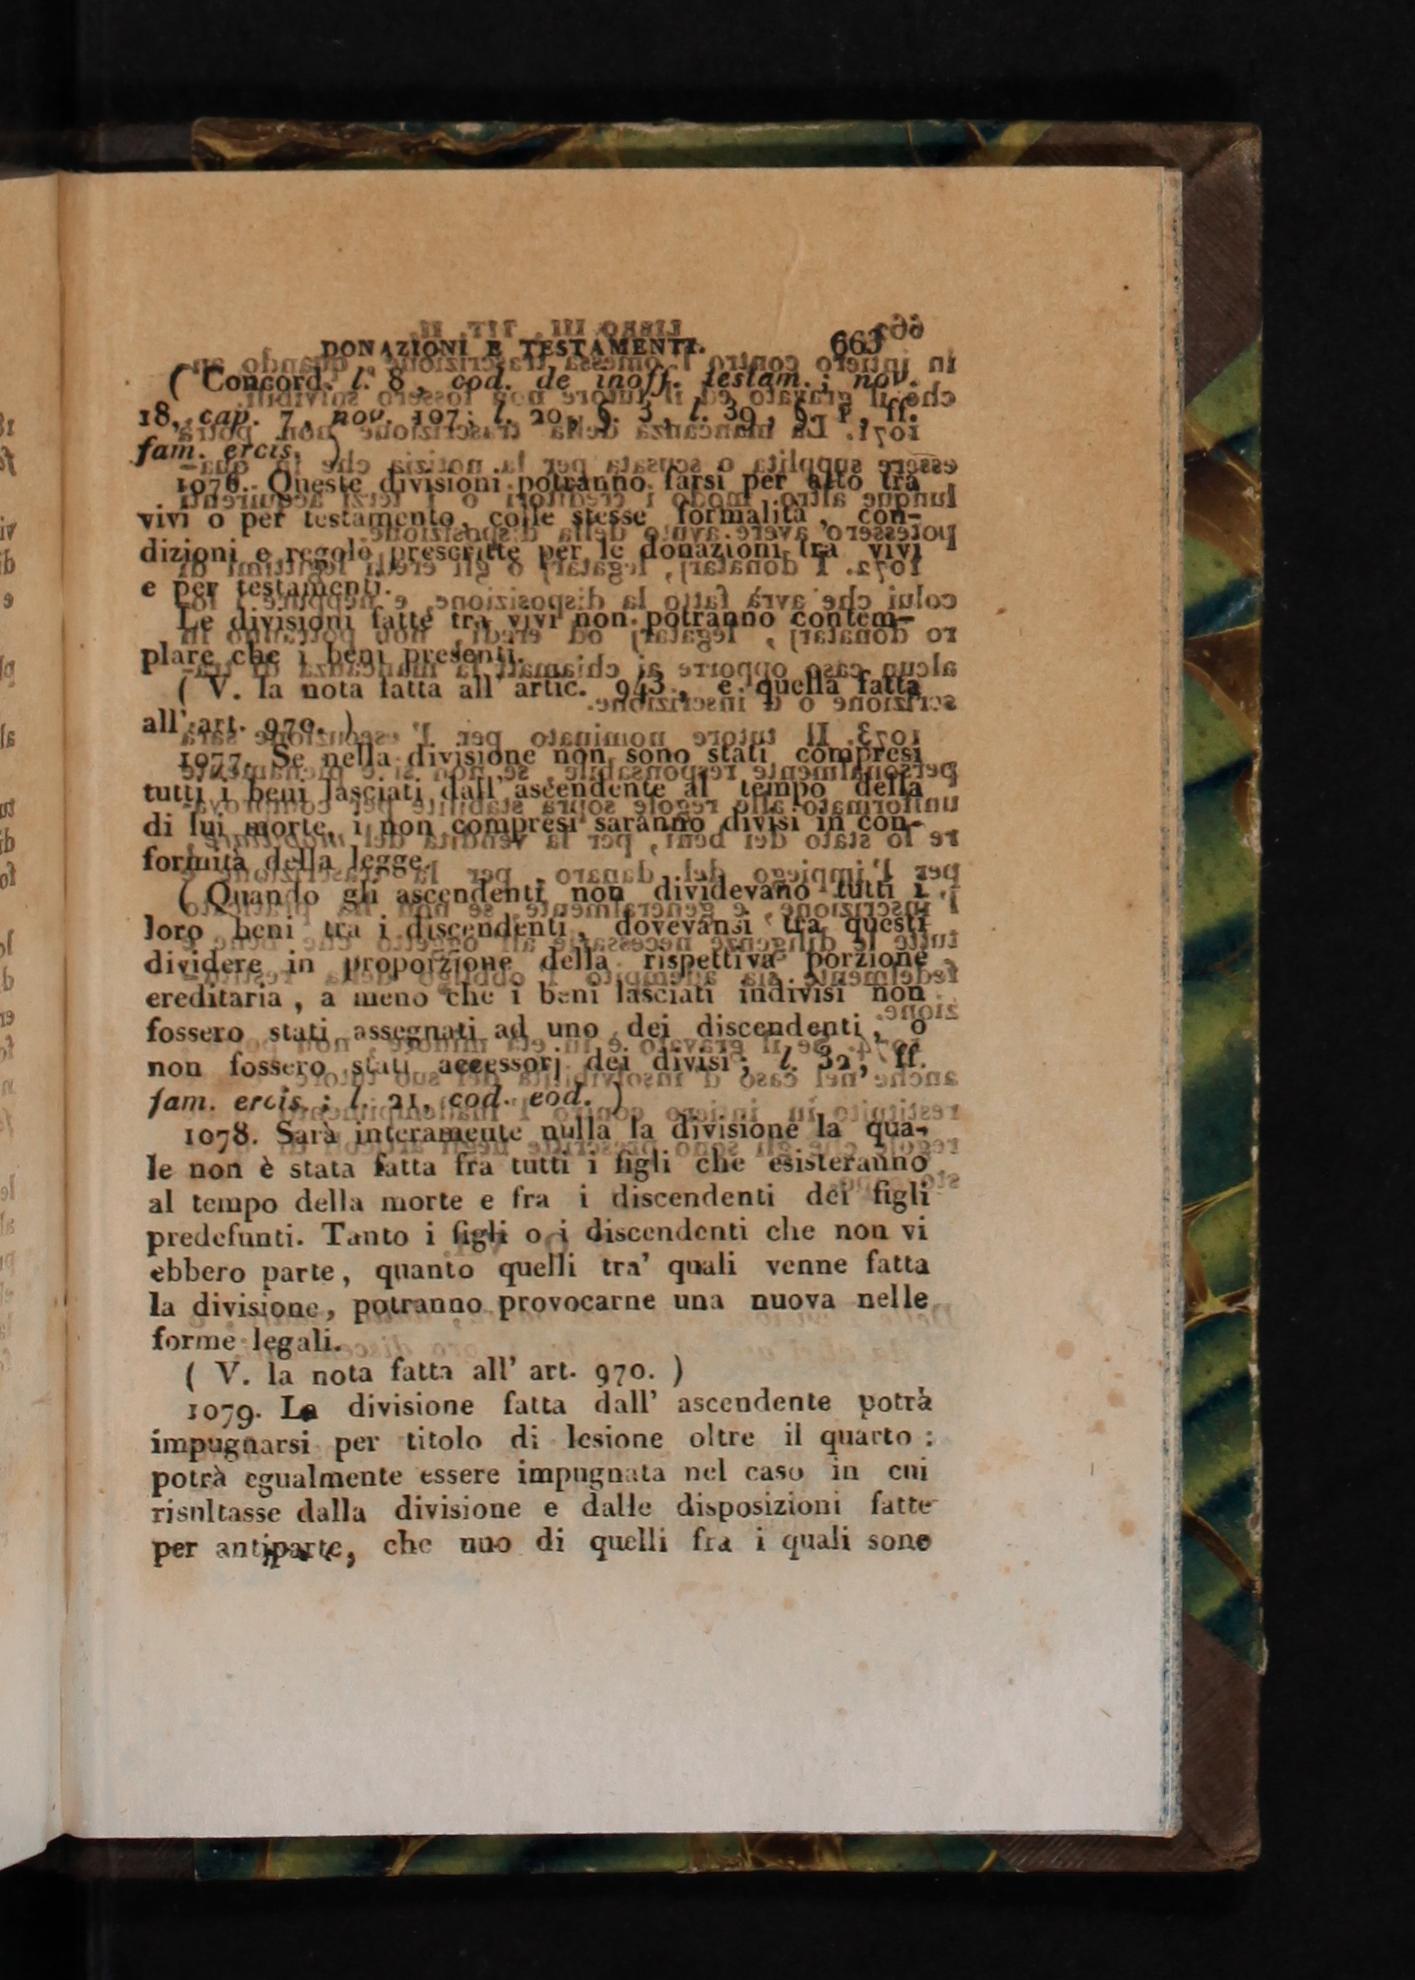 DONAZIONI E TESTAMENTI. 663
( Concord. l. 8, cod. de inoff. testam.; nov.
18, cap. 7, nov. 107; l. 20, §. 3, l. 39, §. 1, ff.
fam. ercis. )
1076. Queste divisioni potranno farsi per atto tra
vivi o per testamento, colle stesse formalità, con-
dizioni e regole prescritte per le donazioni tra vivi
e per testamenti.
Le divisioni fatte tra vivi non potranno contem-
plare che i beni presenti.
( V. la nota fatta all' artic. 943, e quella fatta
all' art. 970. )
1077. Se nella divisione non sono stati compresi
tutti i beni lasciati dall' ascendente al tempo della
di lui morte, i non compresi saranno divisi in con-
formità della legge.
( Quando gli ascendenti non dividevano tutti i
loro beni tra i discendenti, dovevansi tra questi
dividere in proporzione della rispettiva porzione
ereditaria, a meno che i beni lasciati indivisi non
fossero stati assegnati ad uno dei discendenti, o
non fossero stati accessorj dei divisi; l. 32, ff.
fam. ercis.; l. 21, cod. eod. )
1078. Sarà interamente nulla la divisione la qua-
le non è stata fatta fra tutti i figli che esisteranno
al tempo della morte e fra i discendenti dei figli
predefunti. Tanto i figli o i discendenti che non vi
ebbero parte, quanto quelli tra' quali venne fatta
la divisione, potranno provocarne una nuova nelle
forme legali.
( V. la nota fatta all' art. 970. )
1079. La divisione fatta dall' ascendente potrà
impugnarsi per titolo di lesione oltre il quarto :
potrà egualmente essere impugnata nel caso in cui
risultasse dalla divisione e dalle disposizioni fatte
per antiparte, che uno di quelli fra i quali sono